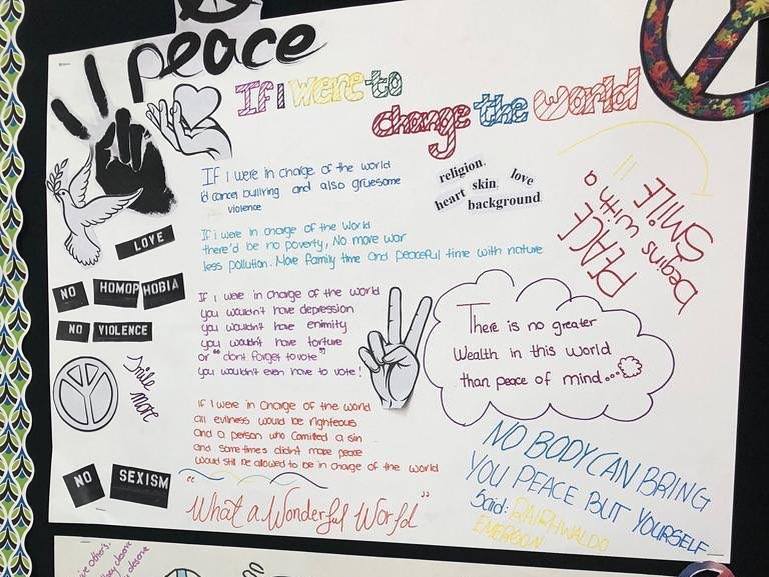 peace
If I were to
change the World
If I were in charge of the world
I'd cancel bullying and also gruesome
violence
religion.
love
heart skin.
background.
PEACE
begins with a
SMILE
If i were in charge of the World
there'd be no poverty, No more war
less pollution. More family time and peaceful time with nature
LOVE
NO HOMOPHOBIA
NO VIOLENCE
If I were in charge of the world
you wouldn't have depression
you wouldn't have enimity
you wouldn't have torture
or "dont forget to vote"
you wouldn't even have to vote!
There is no greater
Wealth in this world
than peace of mind...
Smile
more
If I were in charge of the world
all evilness would be righteous
And a person who comitted a sin
and sometimes didn't make peace
Would still be allowed to be in charge of the world
NO SEXISM
"What a Wonderful World"
NO BODY CAN BRING
YOU PEACE BUT YOURSELF
Said: RAlPHWALDO
EMERSON